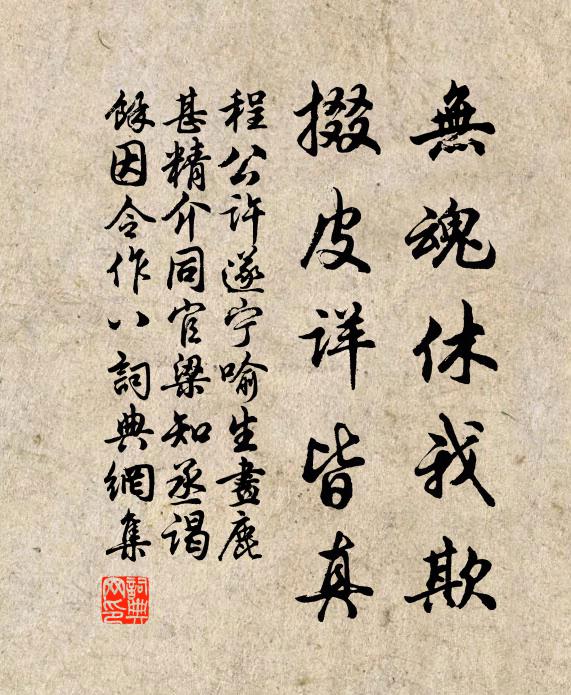 無魂休我欺
掇皮詳皆真
程公許遂宁喻生畫鹿
甚精介同官梁知丞謁
餘因令作八詞典網集
詞典
网印